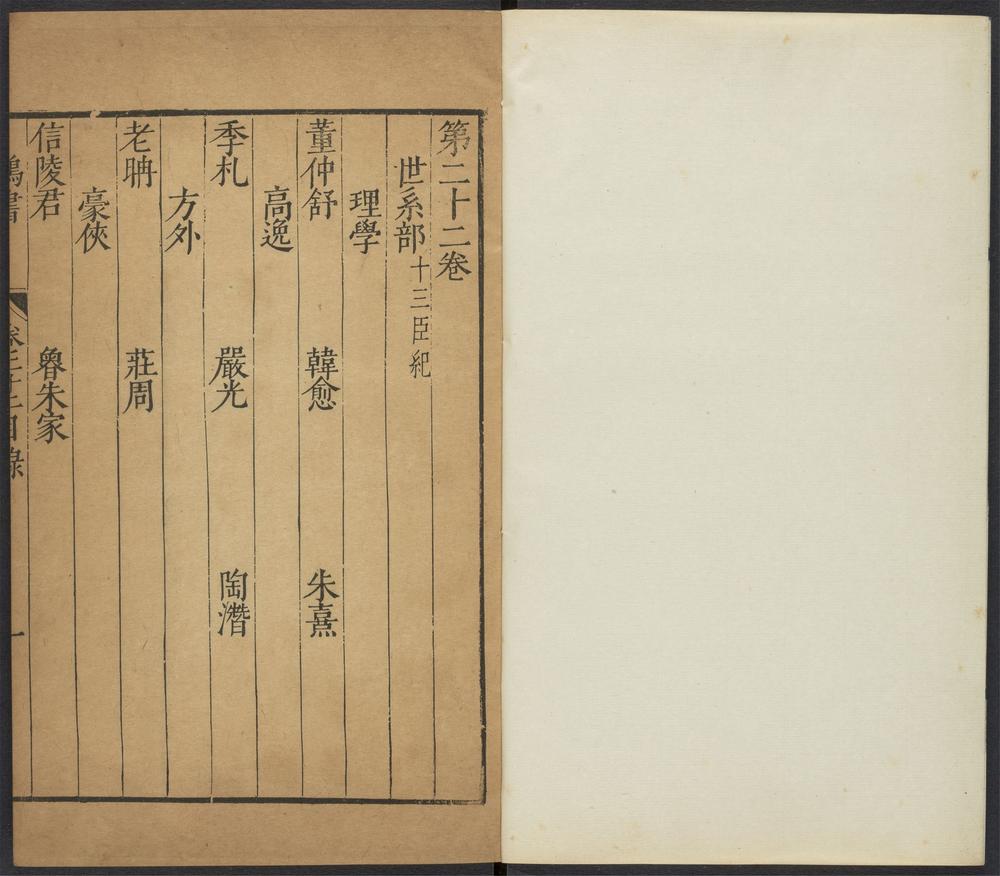 第二十二卷
世系部十三臣紀
理學
董仲舒 韓愈 朱熹
高逸
季札 嚴光 陶潛
方外
老聃 莊周
豪俠
信陵君 魯朱家
鴻書 卷二十二目錄 一